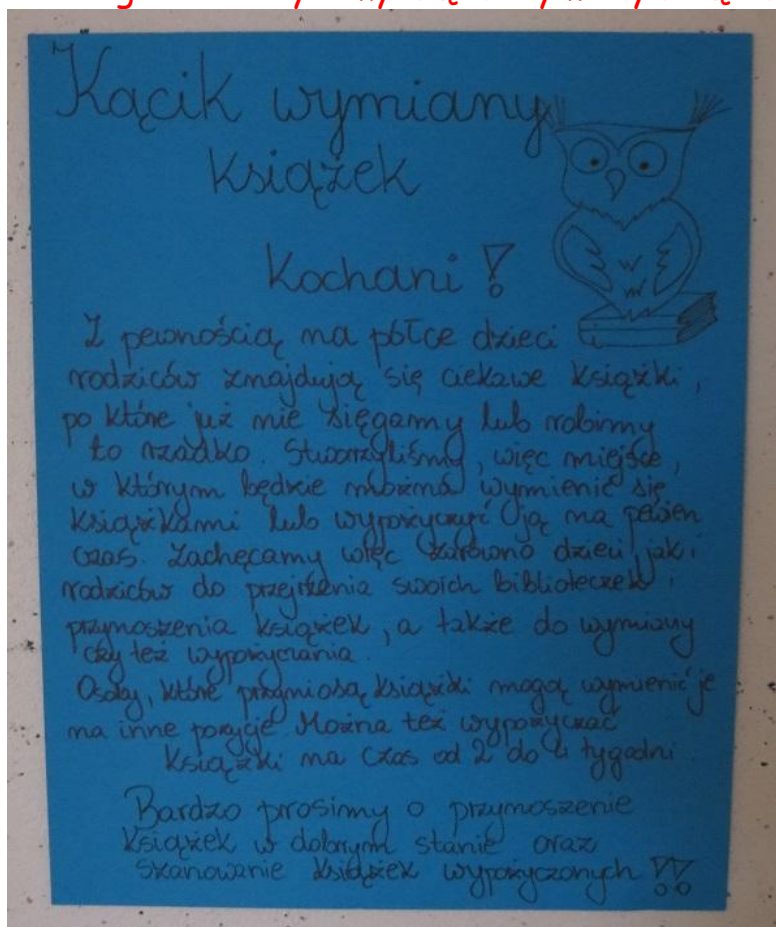 Kącik wymiany
książek
Kochani!
Z pewnością na półce dzieci i
rodziców znajdują się ciekawe książki,
po które już nie sięgamy lub robimy
to rzadko. Stworzyliśmy, więc miejsce,
w którym będzie można wymienić się
książkami lub wypożyczyć ją na pewien
czas. Zachęcamy więc zarówno dzieci, jak i
rodziców do przejrzenia swoich biblioteczek i
przynoszenia książek, a także do wymiany
czy też wypożyczania.
Osoby, które przyniosą książki mogą wymienić je
na inne pozycje. Można też wypożyczać
książki na czas od 2 do 4 tygodni
Bardzo prosimy o przynoszenie
książek w dobrym stanie oraz
szanowanie książek wypożyczonych!!